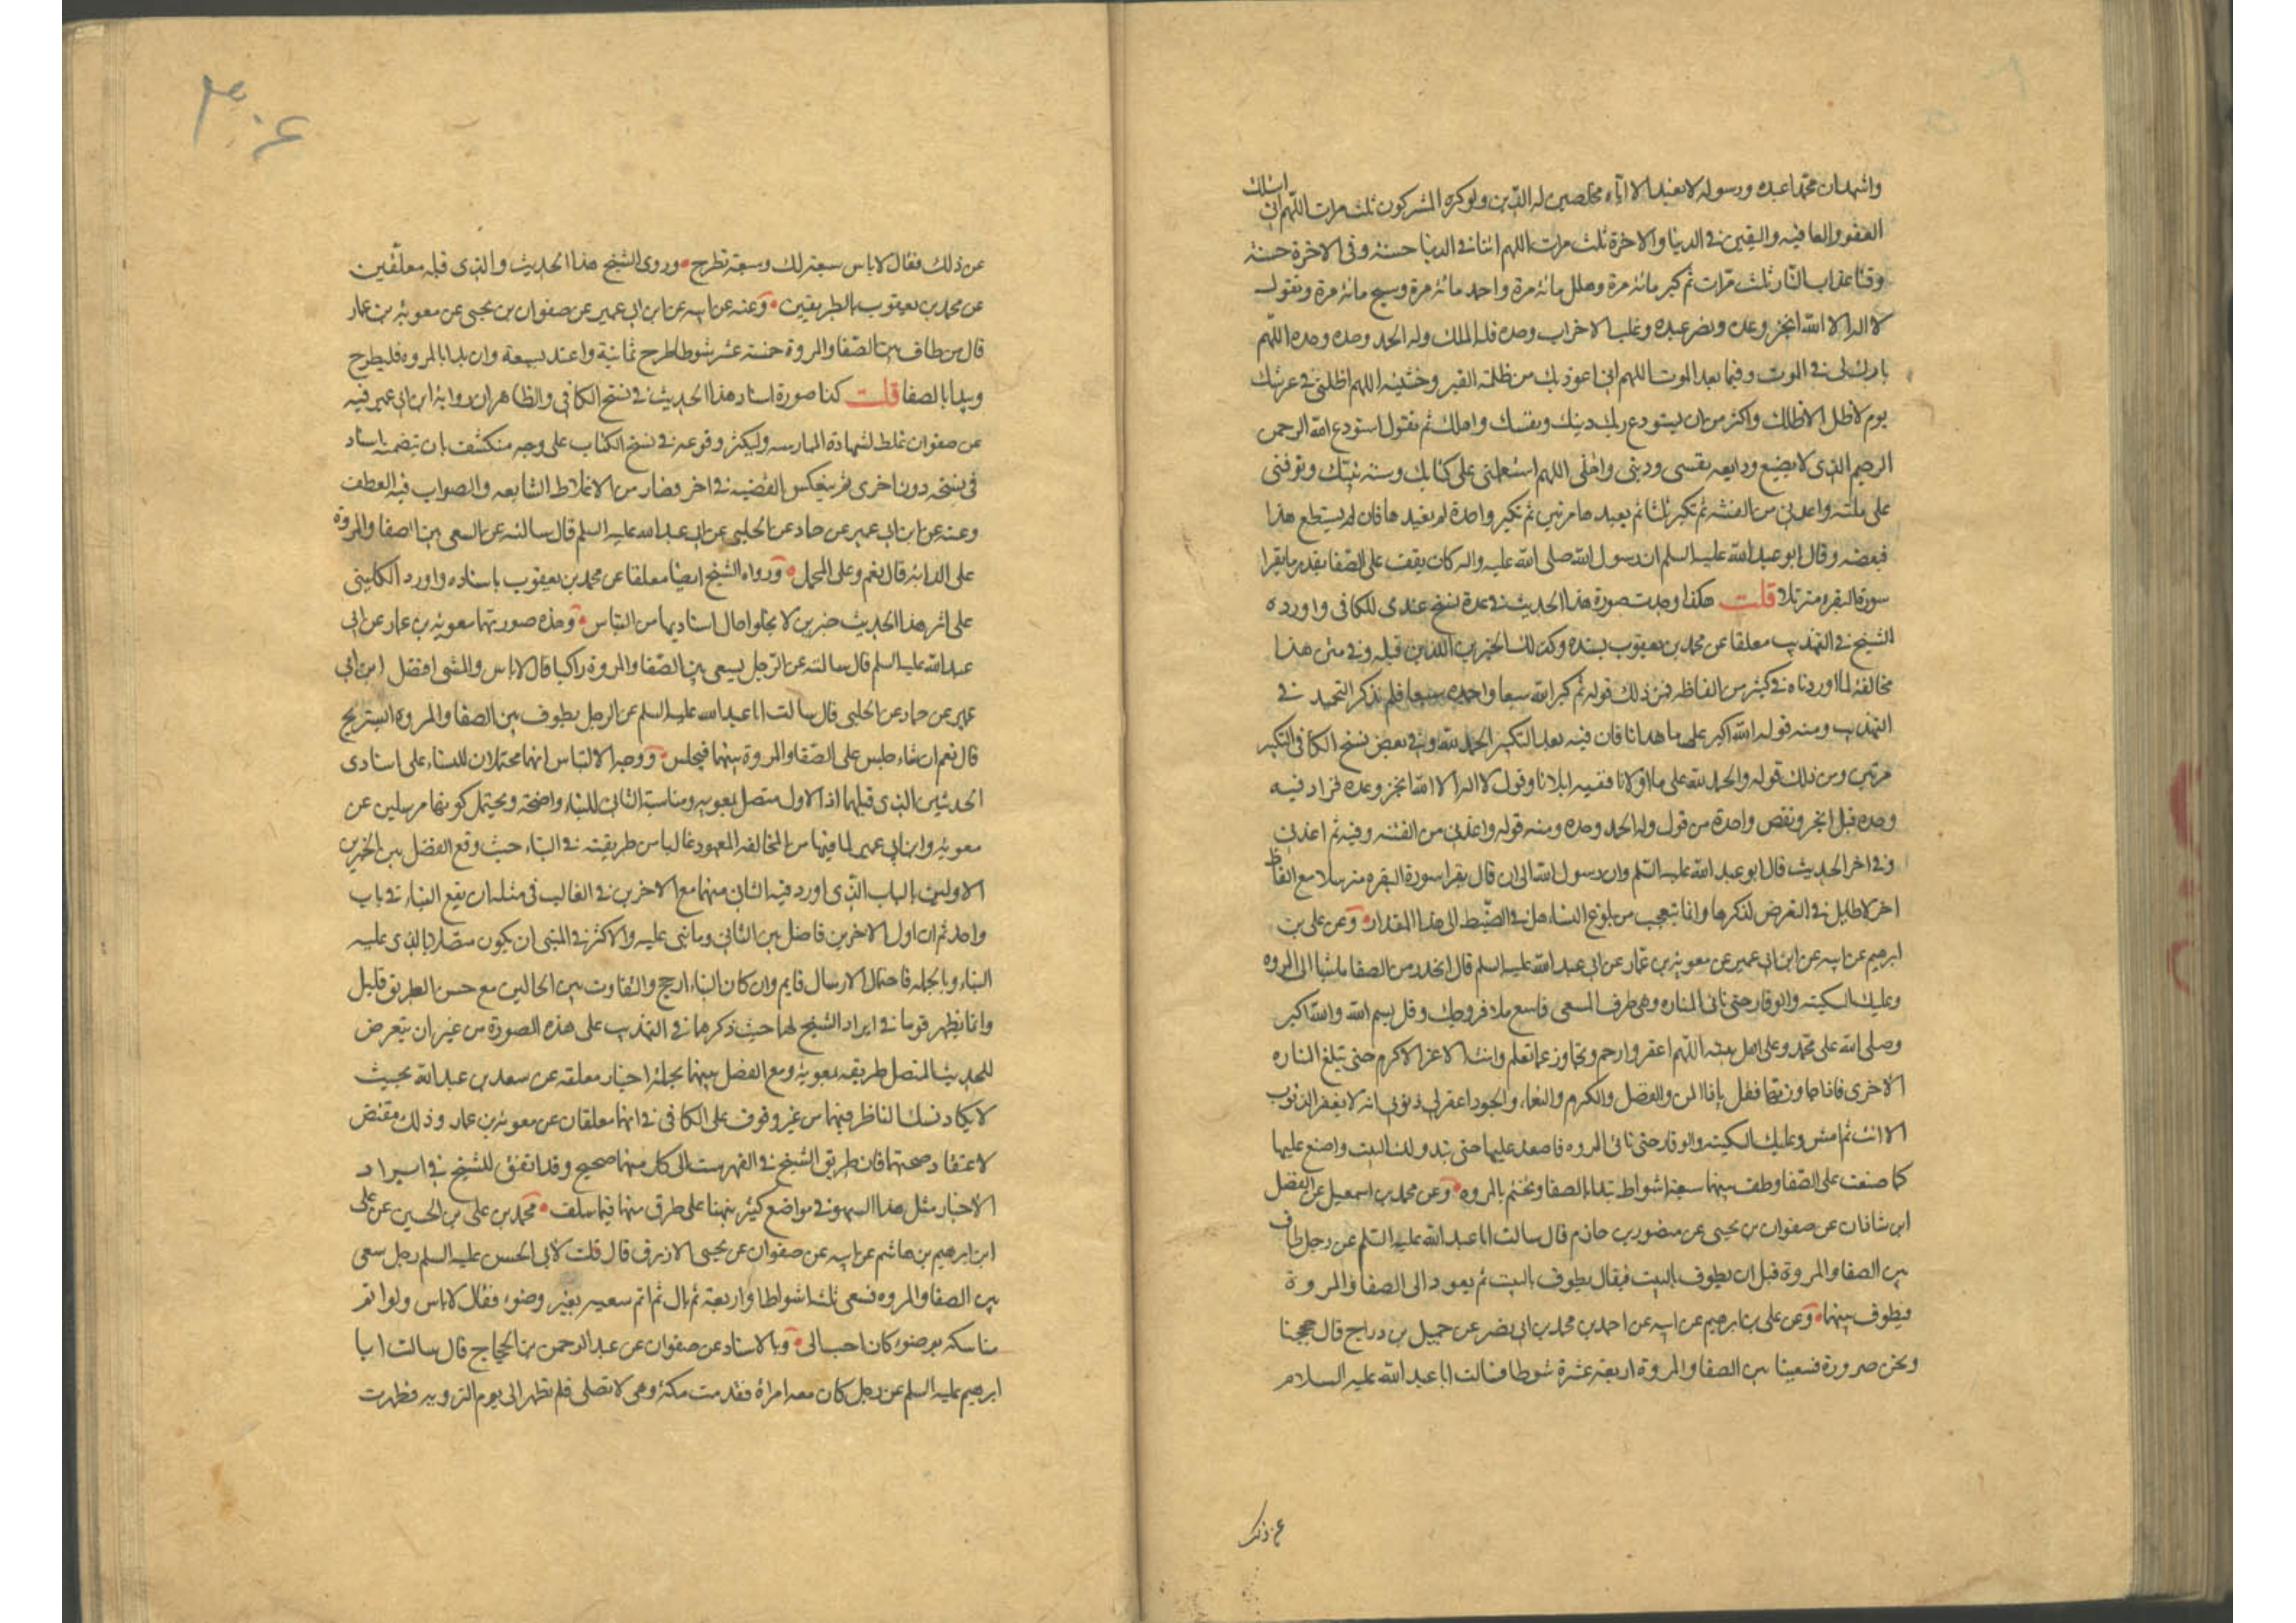 واشهد ان محمدا عبده ورسوله لا نعبد الا اياه مخلصين له الدين ولو كره المشركون ثلث مرات اللهم اني اسئلك
العفو والعافيه واليقين في الدنيا والاخرة ثلث مرات اللهم اتنا في الدنيا حسنة وفي الاخرة حسنة
وقنا عذاب النار ثلث مرات ثم كبر مائة مرة وهلل مائة مرة واحمد مائة مرة وسبح مائة مرة وتقول
لا اله الا الله انجز وعده ونصر عبده وغلب الاحزاب وحده فله الملك وله الحمد وحده وحده اللهم
بارك لي في الموت وفيما بعد الموت اللهم اني اعوذ بك من ظلمة القبر ووحشته اللهم اظلني في عرشك
يوم لا ظل الا ظلك واكثر من ان يستودع ربك دينك ونفسك واهلك ثم تقول استودع الله الرحمن
الرحيم الذي لا يضيع ودايعه نفسي وديني واهلي اللهم استعملني على كتابك وسنة نبيك وتوفني
على ملته واعذني من الفتنه ثم تكبر ثلثا ثم يعيدها مرتين ثم تكبر واحدة ثم يعيدها فان لم يستطع هذا
فبعضه وقال ابو عبد الله عليه السلم ان رسول الله صلى الله عليه واله كان يقف على الصفا بقدر ما يقرا
سورة البقره مترتلا قلت هكذا وجدت صورة هذا الحديث في عدة نسخ عندي للكافي واورده
الشيخ في التهذيب معلقا عن محمد بن يعقوب بسنده وكذلك الخبرين اللذين قبله وفي متن هذا
مخالفة لما اوردناه في كثير من الفاظه فمن ذلك قوله ثم كبر الله سبعا واحمده سبعا فلم يذكر التحميد في
التهذيب ومنه قوله الله اكبر على ما هدانا فان فيه بعد التكبير الحمد لله وفي بعض نسخ الكافي التكبير
مرتين ومن ذلك قوله والحمد لله على ما اولانا ففيه ابلانا وقول لا اله الا الله انجز وعده فزاد فيه
وحده قبل انجز ونقص واحدة من قول وله الحمد وحده ومنه قوله واعذني من الفتنه وفيه ثم اعذني
وفي اخر الحديث قال ابو عبد الله عليه السلم وان رسول الله الى ان قال يقرا سورة البقره مترسلا مع الفاظ
اخر لا طايل في التعرض لذكرها وانما يتعجب من بلوغ التساهل في الضبط الى هذا المقدار وعن علي بن
ابرهيم عن ابيه عن ابن ابي عمير عن معوية بن عمار عن ابي عبد الله عليه السلم قال انحدر من الصفا ماشيا الى المروه
وعليك السكينه والوقار حتى تاتي المناره وهي طرف المسعى فاسع ملا فروجك وقل بسم الله والله اكبر
وصلى الله على محمد وعلى اهل بيته اللهم اغفر وارحم وتجاوز عما تعلم وانت الاعز الاكرم حتى تبلغ المناره
الاخرى فاذا جاوزتها فقل يا ذا المن والفضل والكرم والنعماء والجود اغفر لي ذنوبي انه لا يغفر الذنوب
الا انت ثم امش وعليك السكينه والوقار حتى تاتي المروه فاصعد عليها حتى يبدو لك البيت واصنع عليها
كما صنعت على الصفا وطف بينهما سبعة اشواط تبدا بالصفا وتختم بالمروه وعن محمد بن اسمعيل عن الفضل
ابن شاذان عن صفوان بن يحيى عن منصور بن حازم قال سالت ابا عبد الله عليه السلم عن رجل طاف
بين الصفا والمروة قبل ان يطوف بالبيت فقال يطوف بالبيت ثم يعود الى الصفا والمروة
فيطوف بينهما وعن علي بن ابرهيم عن ابيه عن احمد بن محمد بن ابي نصر عن جميل بن دراج قال حججنا
ونحن صرورة فسعينا بين الصفا والمروة اربعة عشرة شوطا فسالت ابا عبد الله عليه السلام
عن ذلك
٣٠٤
عن ذلك فقال لا باس سبعة لك وسبعة تطرح وروى الشيخ هذا الحديث والذي قبله معلقين
عن محمد بن يعقوب بالطريقين وعنه عن ابيه عن ابن ابي عمير عن صفوان بن يحيى عن معوية بن عمار
قال من طاف بين الصفا والمروة خمسة عشر شوطا طرح ثمانية واعتد بسبعة وان بدا بالمروه فليطرح
ويبدا بالصفا قلت كذا صورة اسناد هذا الحديث في نسخ الكافي والظاهر ان رواية ابن ابي عمير فيه
عن صفوان غلط لشهادة الممارسه وليكثر وقوعه في نسخ الكتاب على وجه منكشف بان تضمنه اسناد
في نسخه دون اخرى ثم ينعكس القضيه في اخر فصار من الاغلاط الشايعه والصواب فيه العطف
وعنه عن ابن ابي عمير عن حماد عن الحلبي عن ابي عبد الله عليه السلم قال سالته عن السعي بين الصفا والمروة
على الدابة قال نعم وعلى المحمل ورواه الشيخ ايضا معلقا عن محمد بن يعقوب باسناده واورد الكليني
على اثر هذا الحديث خبرين لا يخلوا حال اسناديهما من التباس وهذه صورتهما معوية بن عمار عن ابي
عبد الله عليه السلم قال سالته عن الرجل يسعى بين الصفا والمروة راكبا قال لا باس والمشي افضل ابن ابي
عمير عن حماد عن الحلبي قال سالت ابا عبد الله عليه السلم عن الرجل يطوف بين الصفا والمروه ايستريح
قال نعم ان شاء جلس على الصفا والمروة بينهما فيجلس ووجه الالتباس انهما محتملان للبناء على اسنادي
الحديثين الذي قبلهما اذ الاول متصل بمعويه ومناسبة الثاني للبناء واضحة ويحتمل كونهما مرسلين عن
معويه وابن ابي عمير لما فيهما من المخالفه المعهود غالبا من طريقته في البناء حيث وقع الفصل بين الخبرين
الاولين بالباب الذي اورد فيه الثاني منهما مع الاخرين في الغالب في مثله ان يقع البناء في باب
واحد ثم ان اول الاخرين فاصل بين الثاني وما بني عليه والاكثر في المبني ان يكون متصلا بالذي عليه
البناء وبالجمله فاحتمال الارسال قايم وان كان البناء ارجح والتفاوت بين الحالين مع حسن الطريق قليل
وانما يظهر قوما في ايراد الشيخ لها حيث ذكرهما في التهذيب على هذه الصورة من غير ان يتعرض
للحديث المتصل طريقه بمعوية ومع الفصل بينهما بجملة اخبار معلقه عن سعد بن عبد الله بحيث
لا يكاد يشك الناظر فيهما من غير وقوف على الكافي في انهما معلقان عن معوية بن عمار وذلك مقتض
لاعتقاد صحتهما فان طريق الشيخ في الفهرست الى كل منهما صحيح وقد اتفق للشيخ في ايراد
الاخبار مثل هذا السهو في مواضع كثيرة نبهنا على طرق منها فيما سلف محمد بن علي بن الحسين عن علي
ابن ابرهيم بن هاشم عن ابيه عن صفوان عن يحيى الازرق قال قلت لابي الحسن عليه السلم رجل سعى
بين الصفا والمروه فسعى ثلثة اشواط او اربعة ثم بال ثم اتم سعيه بغير وضوء فقال لا باس ولو اتم
مناسكه بوضوء كان احب الي وبالاسناد عن صفوان عن عبد الرحمن بن الحجاج قال سالت ابا
ابرهيم عليه السلم عن رجل كان معه امراة فقدمت مكة وهي لا تصلي فلم تطهر الى يوم الترويه فطهرت